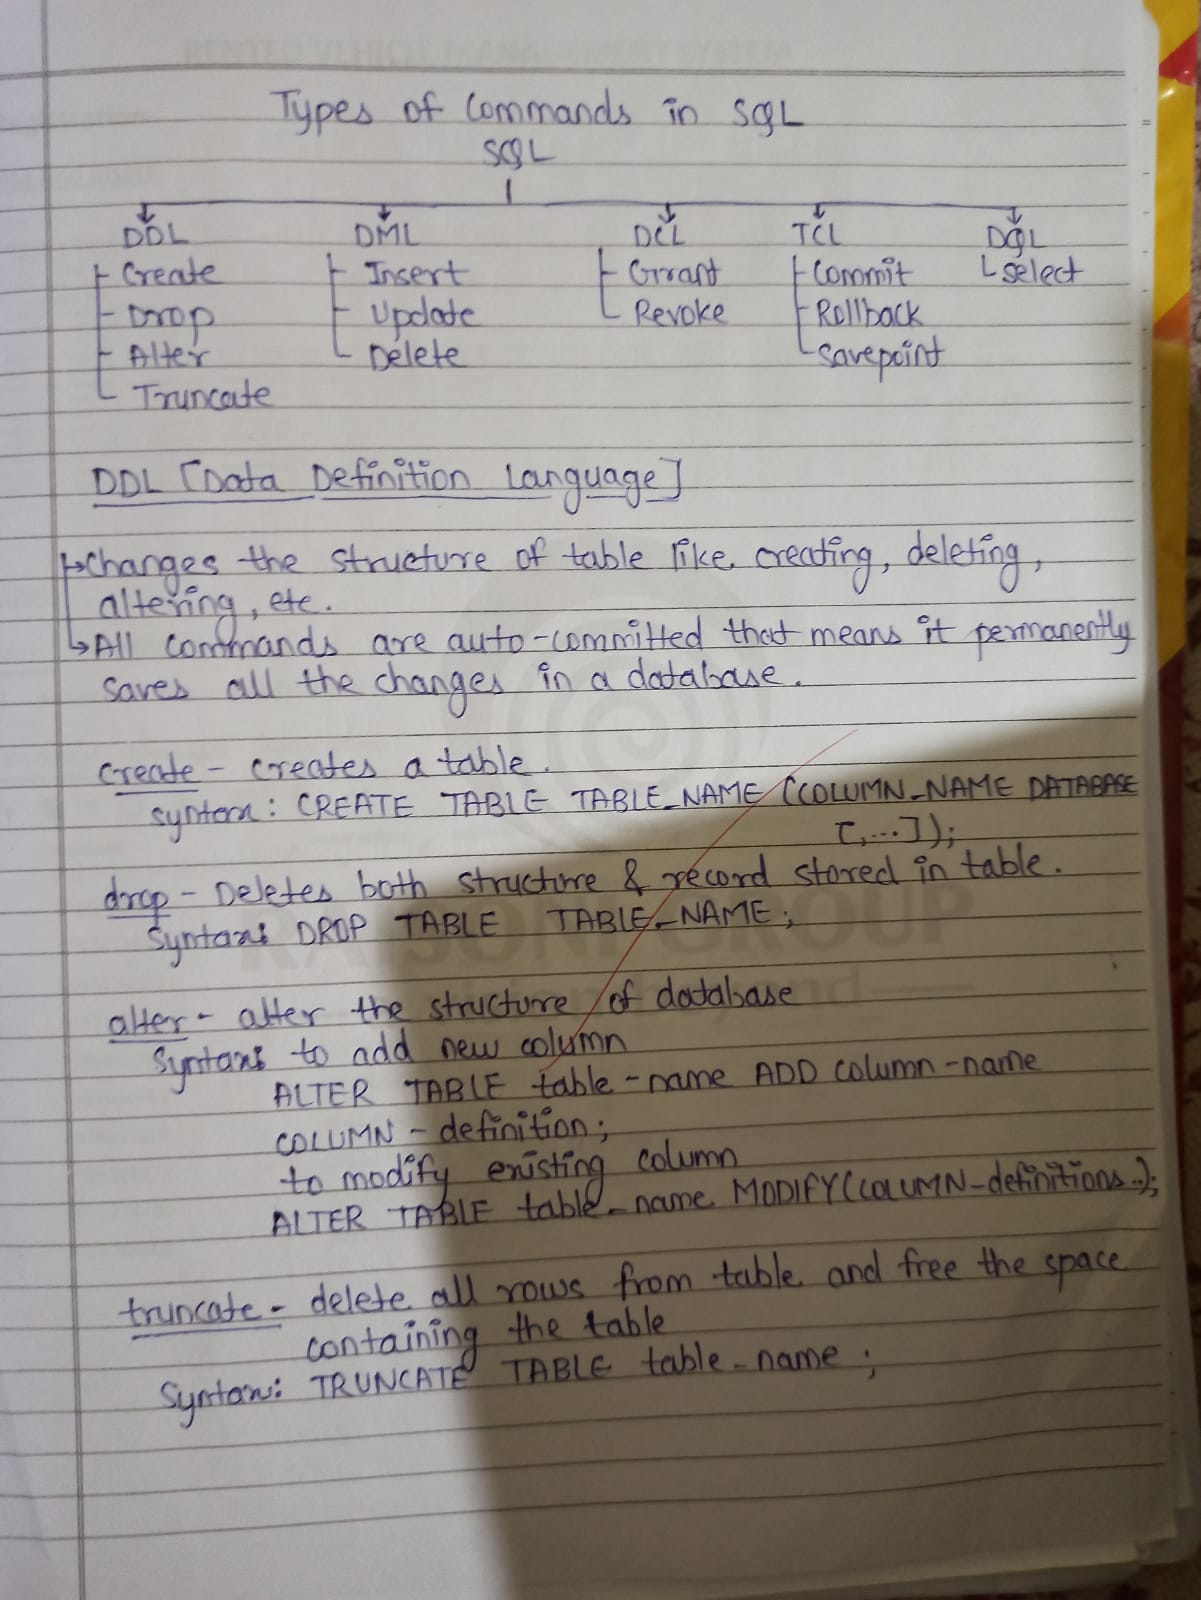 Types of Commands in SQL
SQL
DDL DML DCL TCL DQL
Create Insert Grant Commit select
Drop Update Revoke Rollback
Alter Delete savepoint
Truncate
DDL [Data Definition Language]
Changes the structure of table like creating, deleting,
altering, etc.
All commands are auto-committed that means it permanently
saves all the changes in a database.
create - creates a table.
syntax: CREATE TABLE TABLE_NAME (COLUMN_NAME DATABASE
[,...]);
drop - Deletes both structure & record stored in table.
Syntax: DROP TABLE TABLE_NAME;
alter - alter the structure of database
Syntax: to add new column
ALTER TABLE table-name ADD column-name
COLUMN-definition;
to modify existing column
ALTER TABLE table_name MODIFY(COLUMN-definitions..);
truncate - delete all rows from table and free the space
containing the table
Syntax: TRUNCATE TABLE table-name;